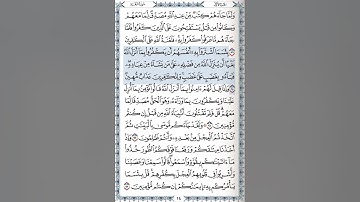 وَلَمَّا جَاءَهُمْ كِتَابٌ مِنْ عِنْدِ اللَّهِ مُصَدِّقٌ لِمَا مَعَهُمْ
وَكَانُوا مِنْ قَبْلُ يَسْتَفْتِحُونَ عَلَى الَّذِينَ كَفَرُوا فَلَمَّا
جَاءَهُمْ مَا عَرَفُوا كَفَرُوا بِهِ فَلَعْنَةُ اللَّهِ عَلَى الْكَافِرِينَ
بِئْسَمَا اشْتَرَوْا بِهِ أَنْفُسَهُمْ أَنْ يَكْفُرُوا بِمَا أَنْزَلَ اللَّهُ
بَغْيًا أَنْ يُنَزِّلَ اللَّهُ مِنْ فَضْلِهِ عَلَى مَنْ يَشَاءُ مِنْ عِبَادِهِ
فَبَاءُوا بِغَضَبٍ عَلَى غَضَبٍ وَلِلْكَافِرِينَ عَذَابٌ مُهِينٌ
وَإِذَا قِيلَ لَهُمْ آمِنُوا بِمَا أَنْزَلَ اللَّهُ قَالُوا نُؤْمِنُ بِمَا أُنْزِلَ
عَلَيْنَا وَيَكْفُرُونَ بِمَا وَرَاءَهُ وَهُوَ الْحَقُّ مُصَدِّقًا لِمَا
مَعَهُمْ قُلْ فَلِمَ تَقْتُلُونَ أَنْبِيَاءَ اللَّهِ مِنْ قَبْلُ إِنْ كُنْتُمْ
مُؤْمِنِينَ وَلَقَدْ جَاءَكُمْ مُوسَى بِالْبَيِّنَاتِ ثُمَّ
اتَّخَذْتُمُ الْعِجْلَ مِنْ بَعْدِهِ وَأَنْتُمْ ظَالِمُونَ وَإِذْ
أَخَذْنَا مِيثَاقَكُمْ وَرَفَعْنَا فَوْقَكُمُ الطُّورَ خُذُوا
مَا آتَيْنَاكُمْ بِقُوَّةٍ وَاسْمَعُوا قَالُوا سَمِعْنَا وَعَصَيْنَا
وَأُشْرِبُوا فِي قُلُوبِهِمُ الْعِجْلَ بِكُفْرِهِمْ قُلْ بِئْسَمَا
يَأْمُرُكُمْ بِهِ إِيمَانُكُمْ إِنْ كُنْتُمْ مُؤْمِنِينَ